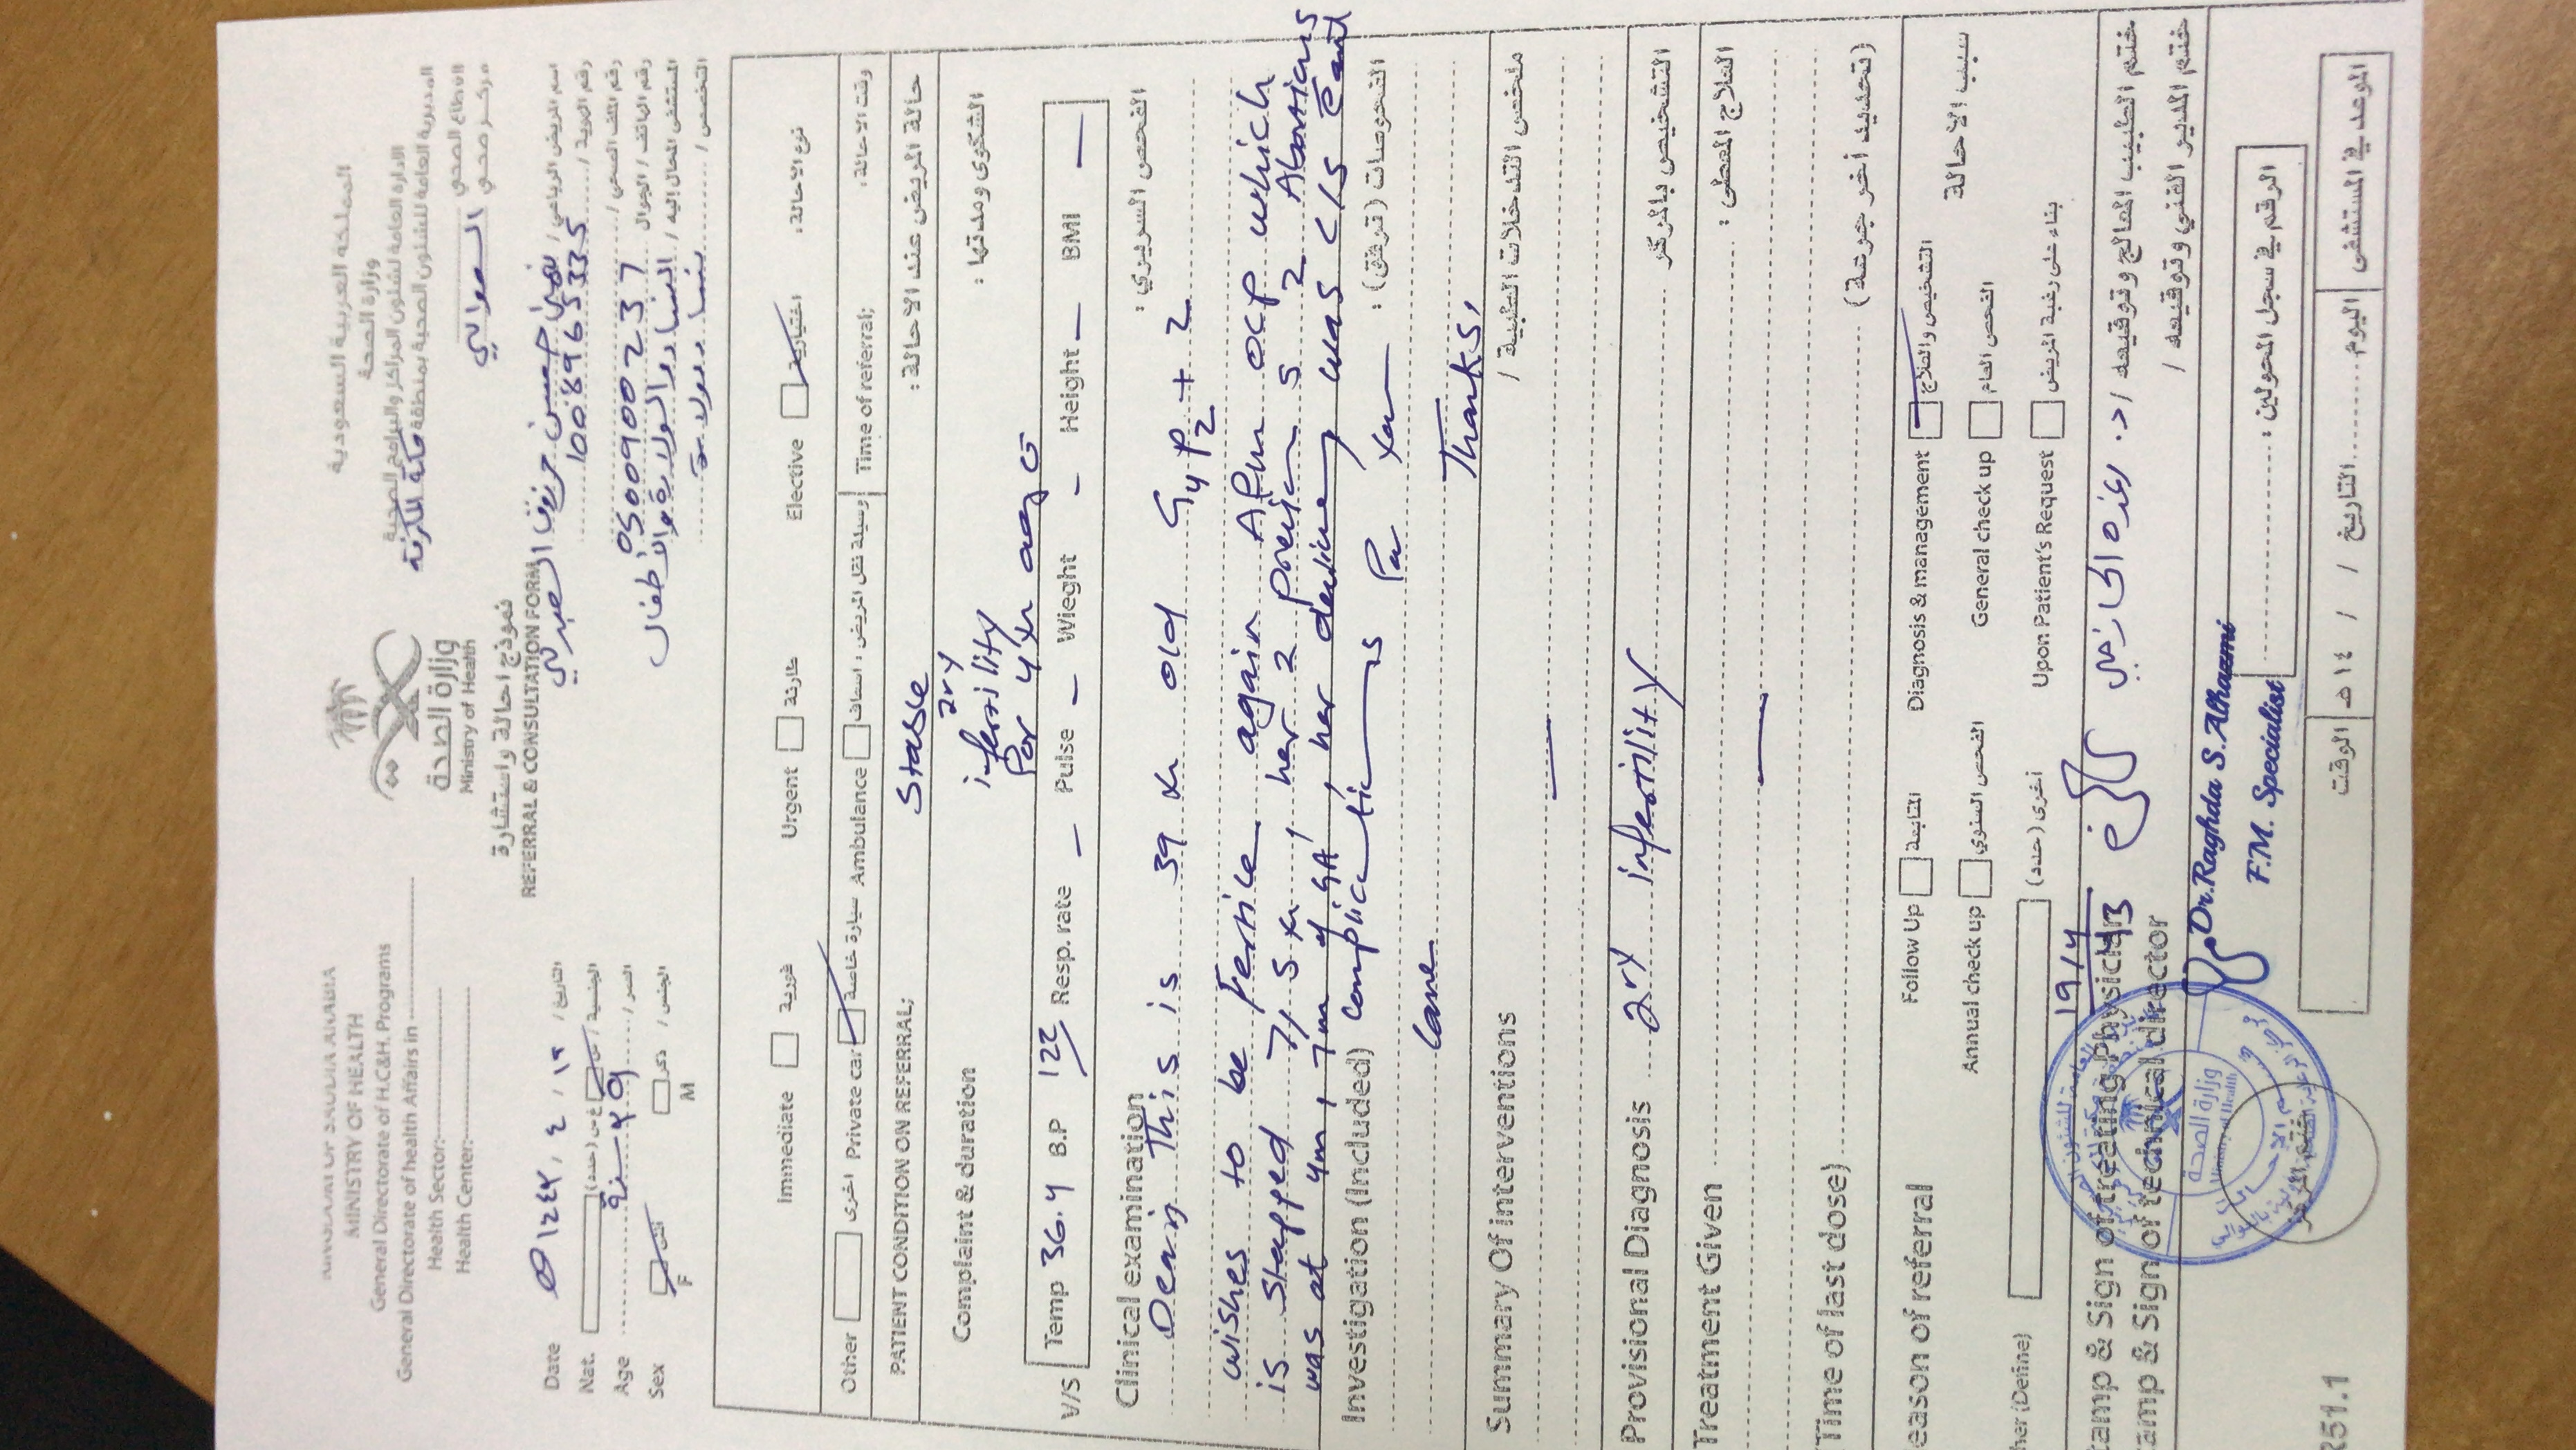 KINGDAM OF SAUDIA ARABIA
MINISTRY OF HEALTH
General Directorate of H.C&H. Programs
General Directorate of health Affairs in
Health Sector:
Health Center:
وزارة الصحة
Ministry of Health
نموذج احالة واستشارة
REFERRAL & CONSULTATION FORM
المملكة العربية السعودية
وزارة الصحة
الادارة العامة لشئون المراكز والبرامج الصحية
المديرية العامة للشئون الصحية بمنطقة مكة المكرمة
القطاع الصحي
مركز صحي العوالي
Date ١٤٤٣ / ٤ / ١٩ التاريخ /
Nat. الجنسية / س غ س (حدد)
Age ٣٩ سنة العمر /
Sex أنثى ذكر الجنس /
F M
اسم المريض الرباعي / حسين مرزوق
رقم الهوية / 1008965335
رقم الملف الصحي /
رقم الهاتف / الجوال 0500900237
المستشفى المحال إليه / النساء والولادة والأطفال
التخصص / نساء وولادة
Immediate فورية Urgent طارئة Elective اختيارية نوع الاحالة :
Other اخرى Private car سيارة خاصة Ambulance وسيلة نقل المريض : اسعاف Time of referral; وقت الاحالة :
PATIENT CONDITION ON REFERRAL; Stable حالة المريض عند الاحالة :
Complaint & duration 2ry infertility الشكوى ومدتها :
For 4 yr
V/S Temp 36.4 B.P 122 Resp. rate – Pulse – Wieght – Height – BMI –
Clinical examination الفحص السريري :
Dear, This is 39 yr old G4P2+2
wishes to be Fertile again After OCP which
is stopped 7/ 5 yr , her 2 previous 2 Abortions
was at 4m, 7m of GA, her delivery was C/S
Investigation (Included) complications For your الفحوصات (ترفق) :
care
Thanks,
Summary Of interventions ملخص التدخلات الطبية /
Provisional Diagnosis 2ry infertility التشخيص بالمركز
Treatment Given العلاج المعطى :
(Time of last dose) (تحديد أخر جرعة)
eason of referral Follow Up المتابعة Diagnosis & management التشخيص والعلاج سبب الاحالة
Annual check up الفحص السنوي General check up الفحص العام
her (Define) أخرى (حدد) Upon Patient's Request بناء على رغبة المريض
19/4
43
tamp & Sign of treating Physician ختم الطبيب المعالج وتوقيعه / د. رغده الحازمي
tamp & Sign of technical director ختم المدير الفني وتوقيعه /
وزارة الصحة
Ministry of Health
قسم الإحالات
ختم المركز
Dr.Raghda S.Alhazmi
F.M. Specialist
الرقم في سجل المحولين :
R51.1
الموعد في المستشفى اليوم التاريخ / / ١٤ هـ الوقت